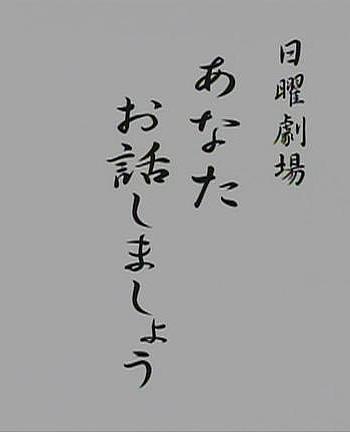 日曜劇場
あなた
お話しましょう